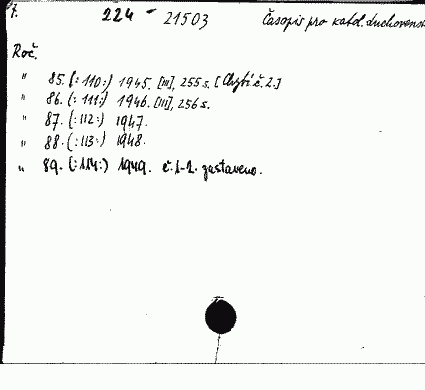 7. 224 - 21503 Časopis pro katol. duchovenst
Roč.
" 85. (:110:) 1945. [III], 255 s. [Chybí č. 2.]
" 86. (:111:) 1946. [III], 256 s.
" 87. (:112:) 1947.
" 88. (:113:) 1948.
" 89. (:114:) 1949. č. 1-2. zastaveno.